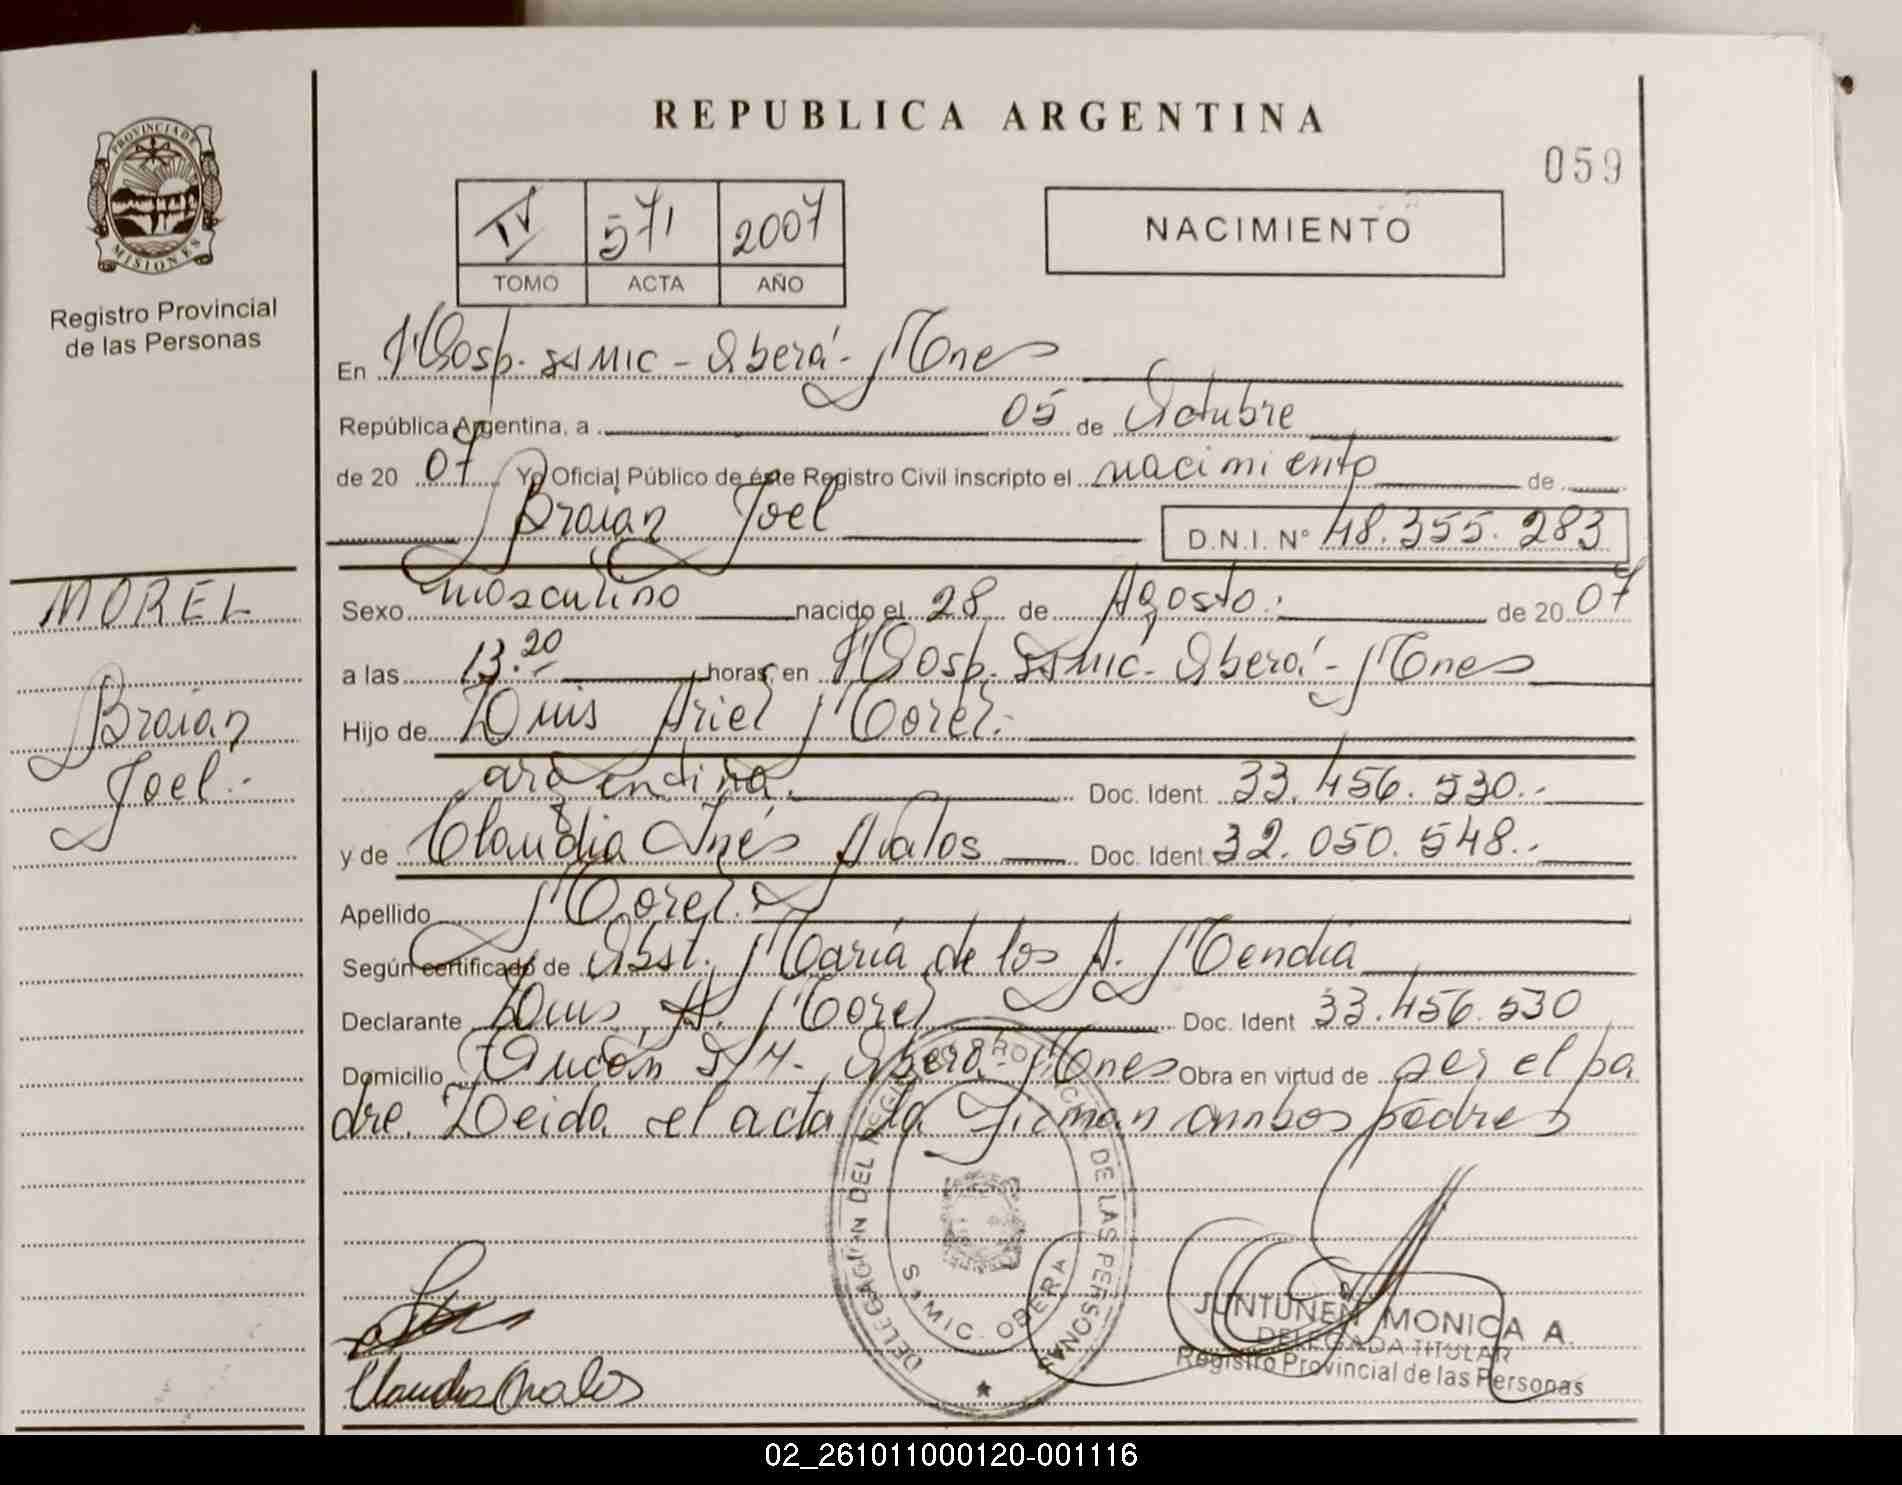 REPUBLICA ARGENTINA
059
PROVINCIA DE
MISIONES
Registro Provincial
de las Personas
IV 571 2007
TOMO ACTA AÑO
NACIMIENTO
En Hosp. SAMIC - Oberá - Mnes
República Argentina, a 05 de Octubre
de 20 07 Yo Oficial Público de éste Registro Civil inscripto el nacimiento de
Braian Joel D.N.I. N° 48.355.283
MOREL
Braian
Joel.-
Sexo masculino nacido el 28 de Agosto.- de 20 07
a las 13.20 horas, en Hosp. SAMIC - Oberá - Mnes
Hijo de Luis Ariel Morel.-
argentina. Doc. Ident. 33.456.530.-
y de Claudia Inés Doc. Ident 32.050.548.-
Apellido Morel.-
Según certificado de Obst. María de los A. Mendia
Declarante Luis A. Morel Doc. Ident 33.456.530
Domicilio S/N - Oberá - Mnes Obra en virtud de ser el pa
dre. Leida el acta la Firman ambos padres
DELEGACIÓN DEL REGISTRO PROVINCIAL DE LAS PERSONAS
SAMIC. OBERA
Claudia
JUNTUNEN MONICA A.
DELEGADA TITULAR
Registro Provincial de las Personas
02_261011000120-001116